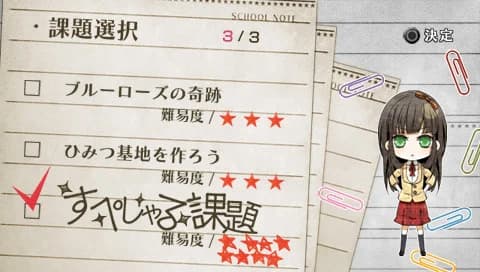 SCHOOL NOTE
・課題選択 3/3
決定
ブルーローズの奇跡
難易度/★★★
ひみつ基地を作ろう
難易度/★★★
すぺしゃる課題
難易度/★★★★
★★★★